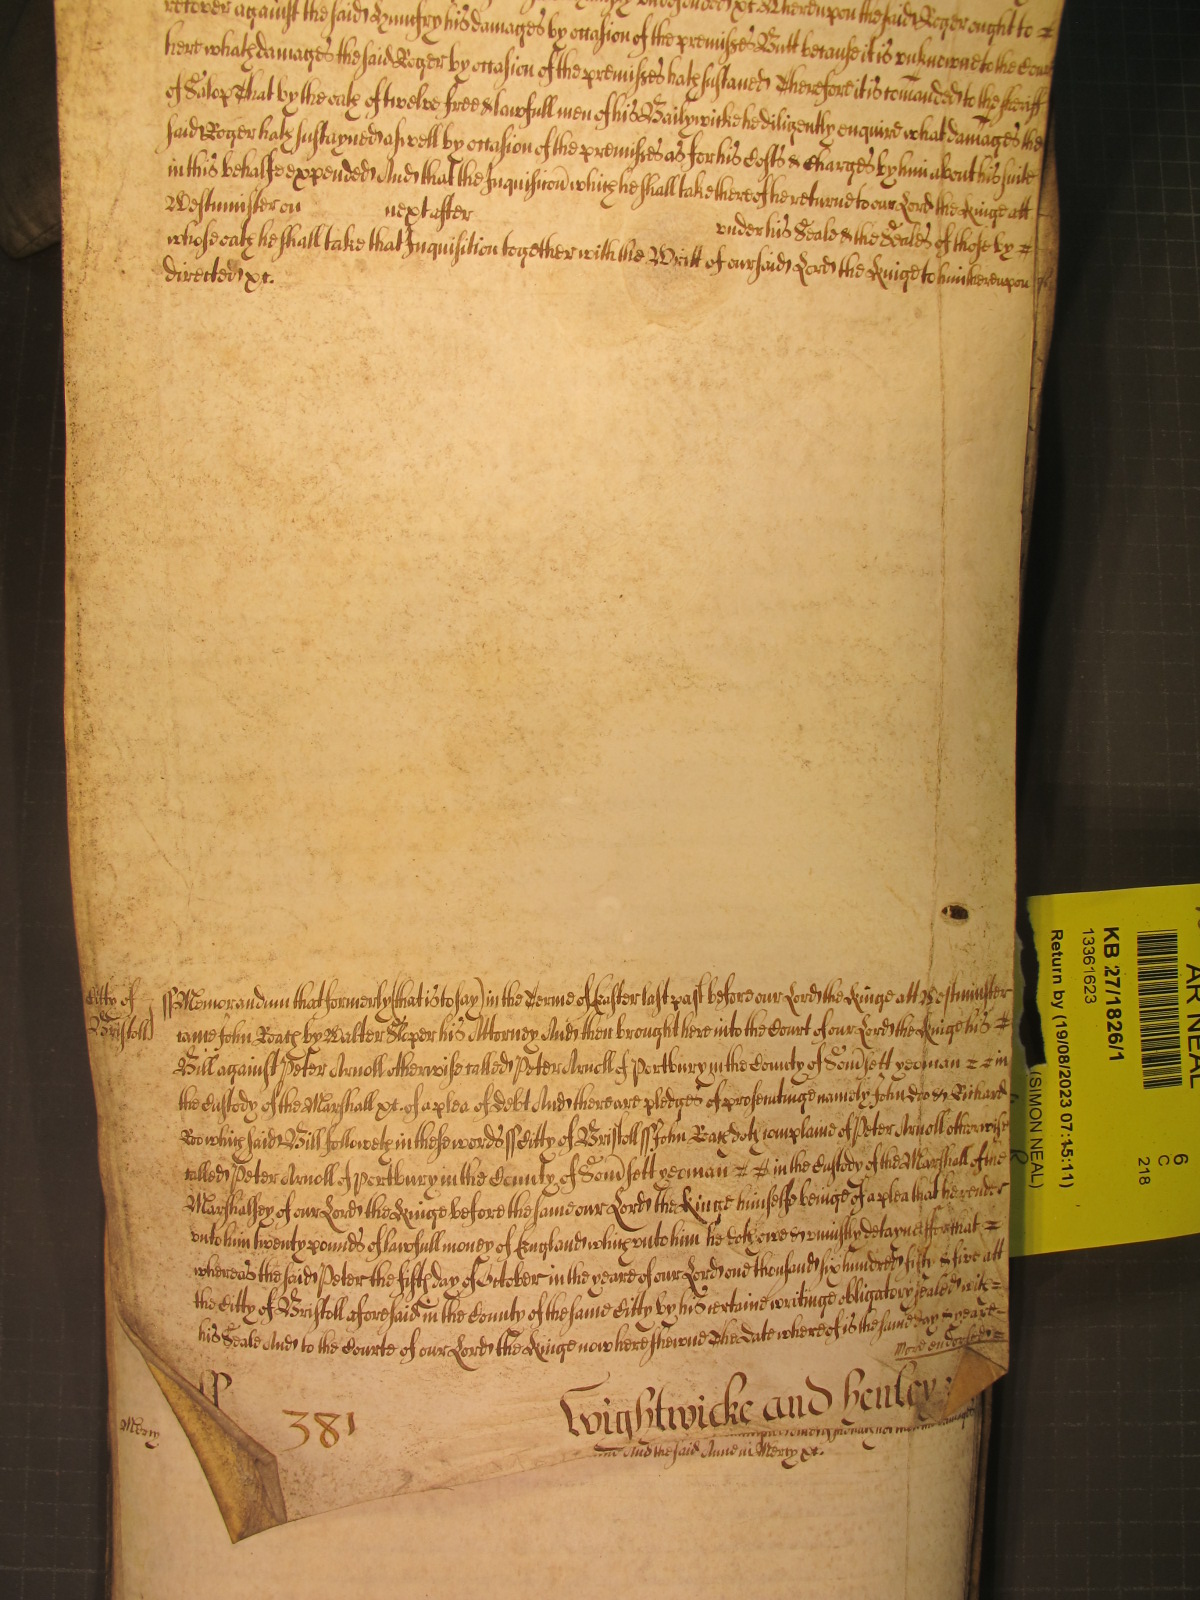 recover against the said Humfry his damages by occasion of the premisses Butt because it is unknowne to the Court
here what damages the said Roger by occasion of the premisses hath sustaned Therefore it is comanded to the sheriff
of Salop That by the oath of twelve free & lawfull men of his Bailywicke he diligently enquire what damages the
said Roger hath sustayned aswell by occasion of the premisses as for his Costs & Charges by him about his suite
in this behalfe expended And that the Inquisicon which he shall take thereof he returne to our Lord the Kinge att
Westminster on next after under his Seale & the Seales of those by
whose oath he shall take that Inquisition together with the Writt of our said Lord the Kinge to him thereupon
directed xc.
Citty of
Bristoll
ss Memorandum that formerly (that is to say) in the Terme of Easter last past before our Lord the Kinge att Westminster
came John Roach by Walter his Attorney And then brought here into the Court of our Lord the Kinge his
Bill against Peter Arnoll otherwise called Peter Arnoll of Portbury in the County of Somsett yeoman in
the Custody of the Marshall xc. of a plea of Debt And there are pledges of prosecutinge namely John Doe & Richard
Roe which said Bill followeth in these words ss Citty of Bristoll ss John Roach doth complaine of Peter Arnoll otherwise
called Peter Arnoll of Portbury in the County of Somsett yeoman in the Custody of the Marshall of the
Marshalsey of our Lord the Kinge before the same our Lord the Kinge himselfe beinge of a plea that he render
unto him twenty pounds of lawfull money of England which unto him he doth owe & uniustly detayne ffor that
whereas the said Peter the fifth day of October in the yeare of our Lord one thousand six hundred fifty & five att
the Citty of Bristoll aforesaid in the County of the same Citty by his certaine writinge obligatory sealed with
his Seale And to the Courte of our Lord the Kinge now here shewne The Date whereof is the same day & yeare
More endorsed
ss
381
Wightwicke and Henley
Mercy
And the said Anne in Mercy xc.
AR NEAL
6
C
218
KB 27/1826/1
13361623
(SIMON NEAL)
Return by (19/08/2023 07:15:11)